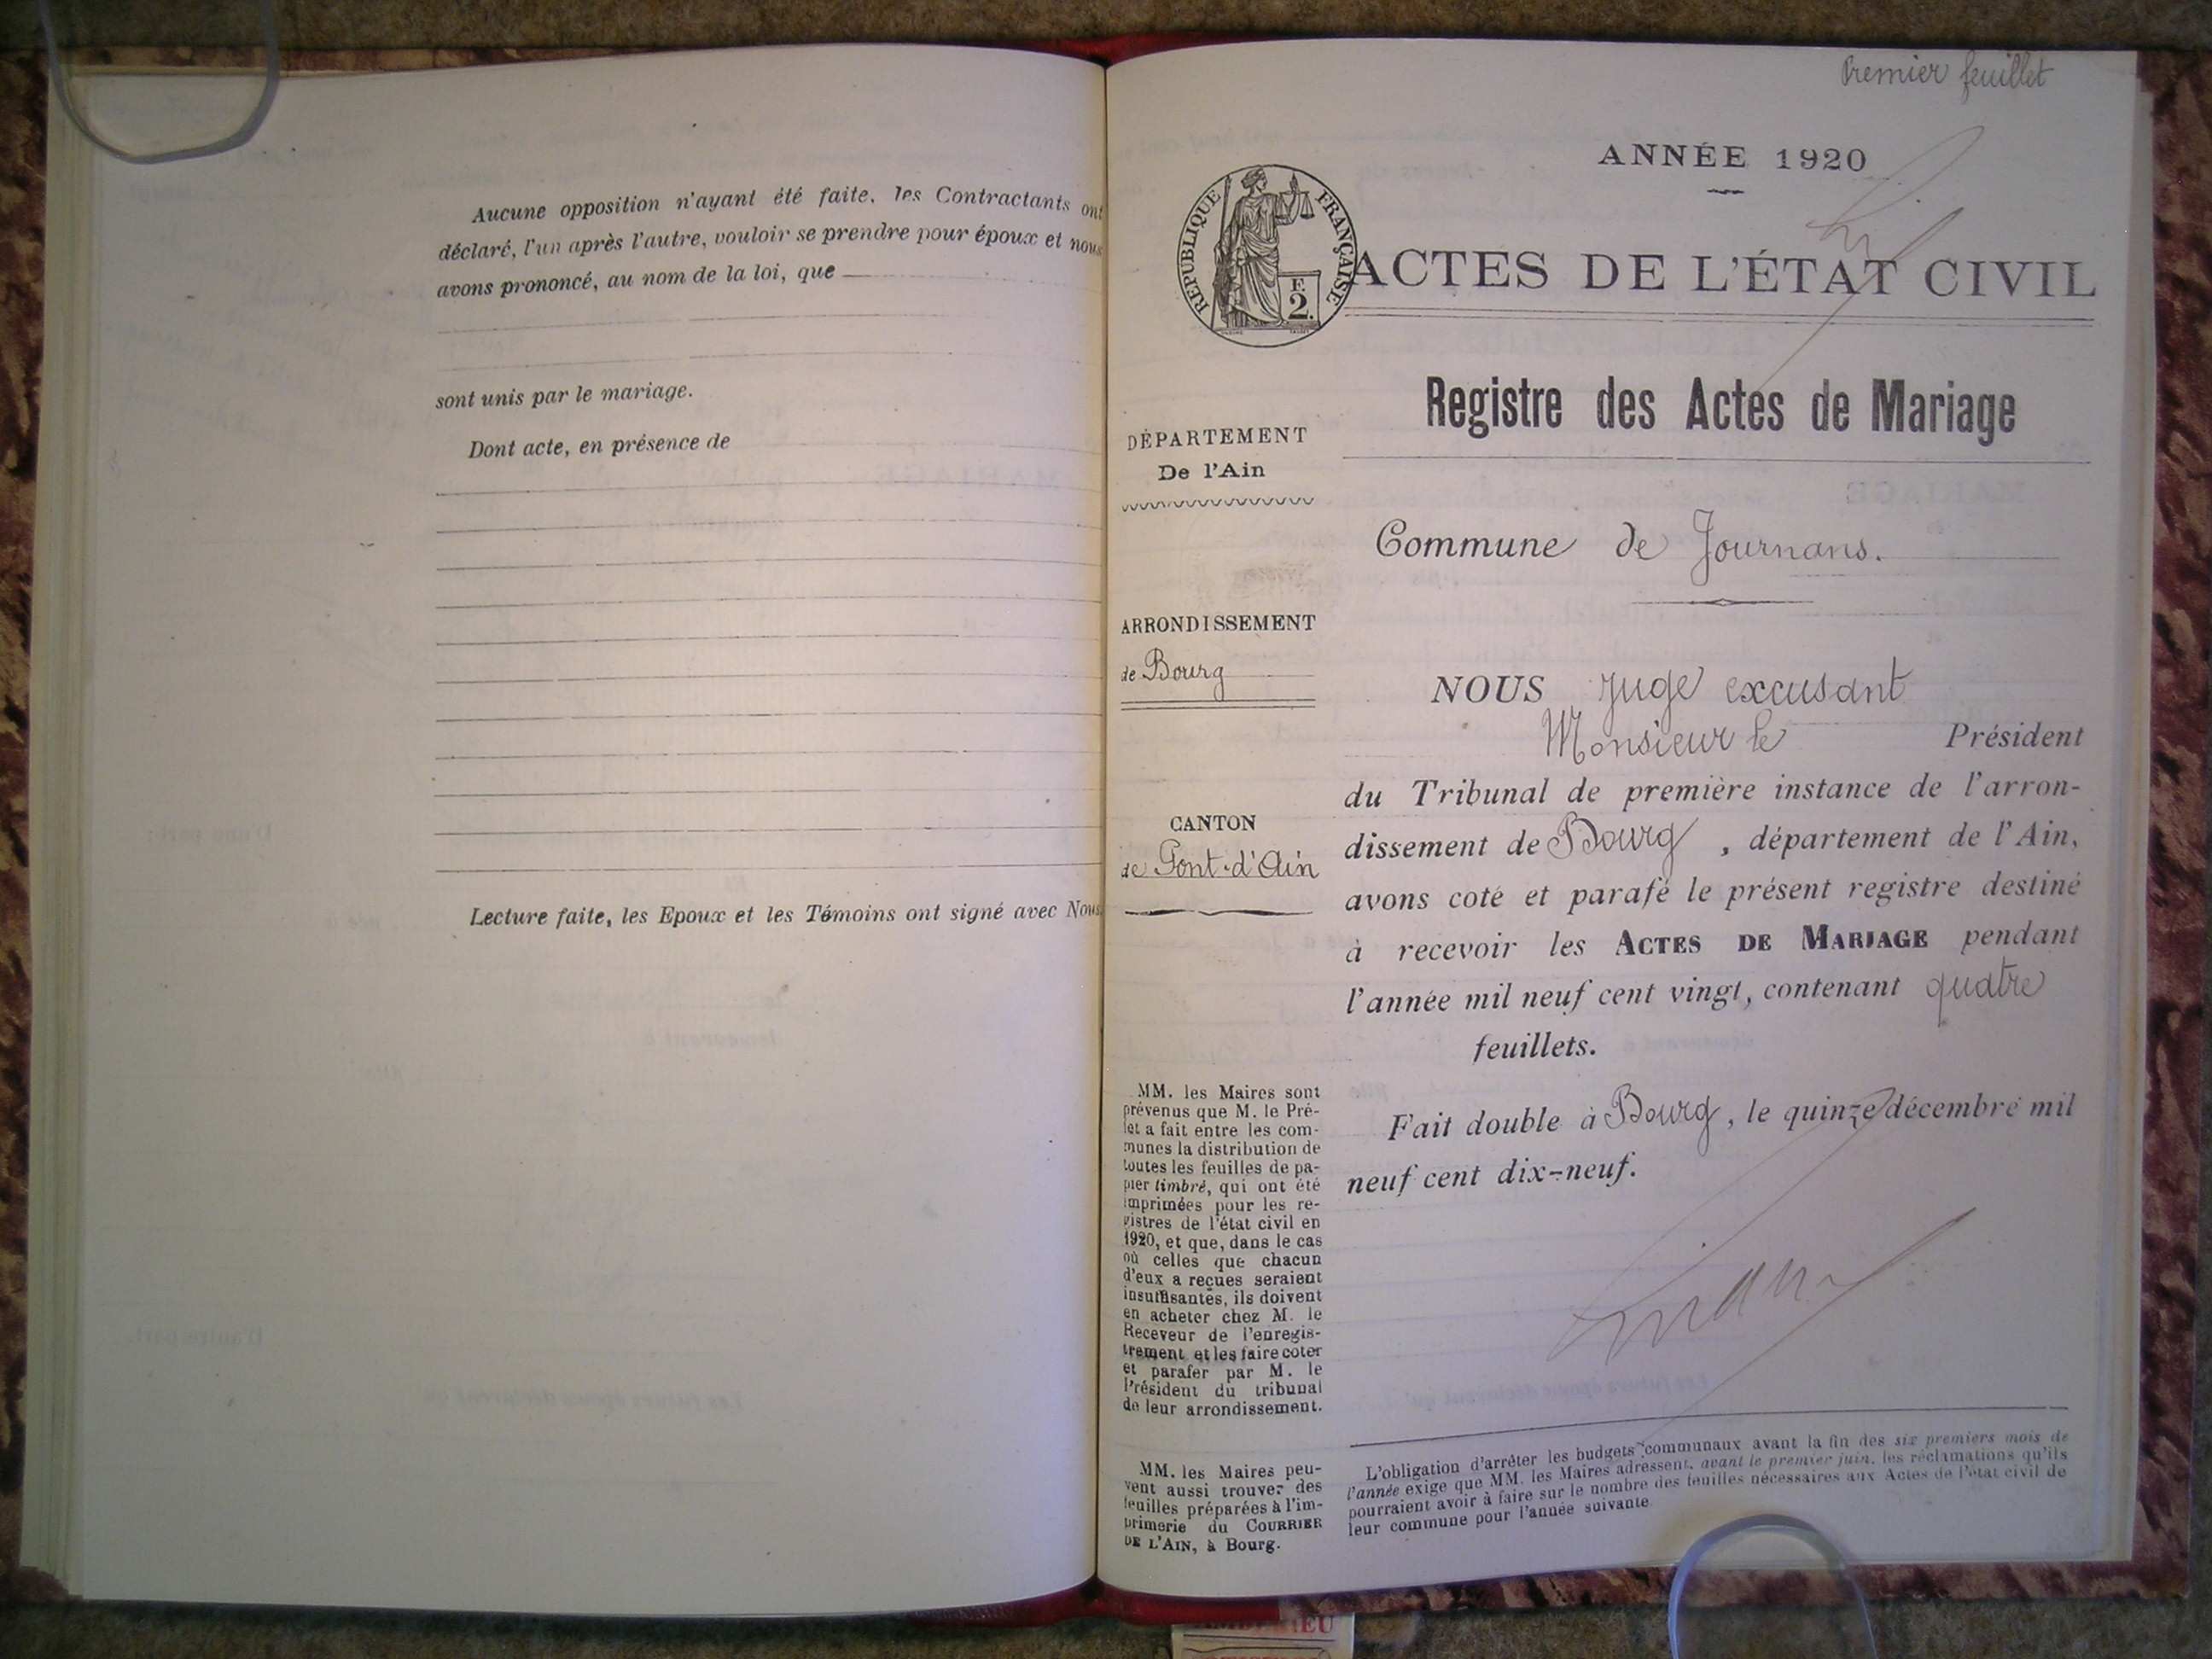 Aucune opposition n'ayant été faite, les Contractants ont
déclaré, l'un après l'autre, vouloir se prendre pour époux et nous
avons prononcé, au nom de la loi, que
sont unis par le mariage.
Dont acte, en présence de
Lecture faite, les Epoux et les Témoins ont signé avec Nous.
Premier feuillet
ANNÉE 1920
RÉPUBLIQUE FRANÇAISE
F.
2.
ACTES DE L'ÉTAT CIVIL
Registre des Actes de Mariage
DÉPARTEMENT
De l'Ain
Commune de Journans.
ARRONDISSEMENT
de Bourg
CANTON
de Pont-d'Ain
NOUS juge excusant
Monsieur le Président
du Tribunal de première instance de l'arron-
dissement de Bourg, département de l'Ain,
avons coté et parafé le présent registre destiné
à recevoir les ACTES DE MARIAGE pendant
l'année mil neuf cent vingt, contenant quatre
feuillets.
Fait double à Bourg, le quinze décembre mil
neuf cent dix-neuf.
MM. les Maires sont
prévenus que M. le Pré-
fet a fait entre les com-
munes la distribution de
toutes les feuilles de pa-
pier timbré, qui ont été
imprimées pour les re-
gistres de l'état civil en
1920, et que, dans le cas
où celles que chacun
d'eux a reçues seraient
insuffisantes, ils doivent
en acheter chez M. le
Receveur de l'enregis-
trement et les faire coter
et parafer par M. le
Président du tribunal
de leur arrondissement.
MM. les Maires peu-
vent aussi trouver des
feuilles préparées à l'im-
primerie du COURRIER
DE L'AIN, à Bourg.
L'obligation d'arrêter les budgets communaux avant la fin des six premiers mois de
l'année exige que MM. les Maires adressent, avant le premier juin, les réclamations qu'ils
pourraient avoir à faire sur le nombre des feuilles nécessaires aux Actes de l'état civil de
leur commune pour l'année suivante